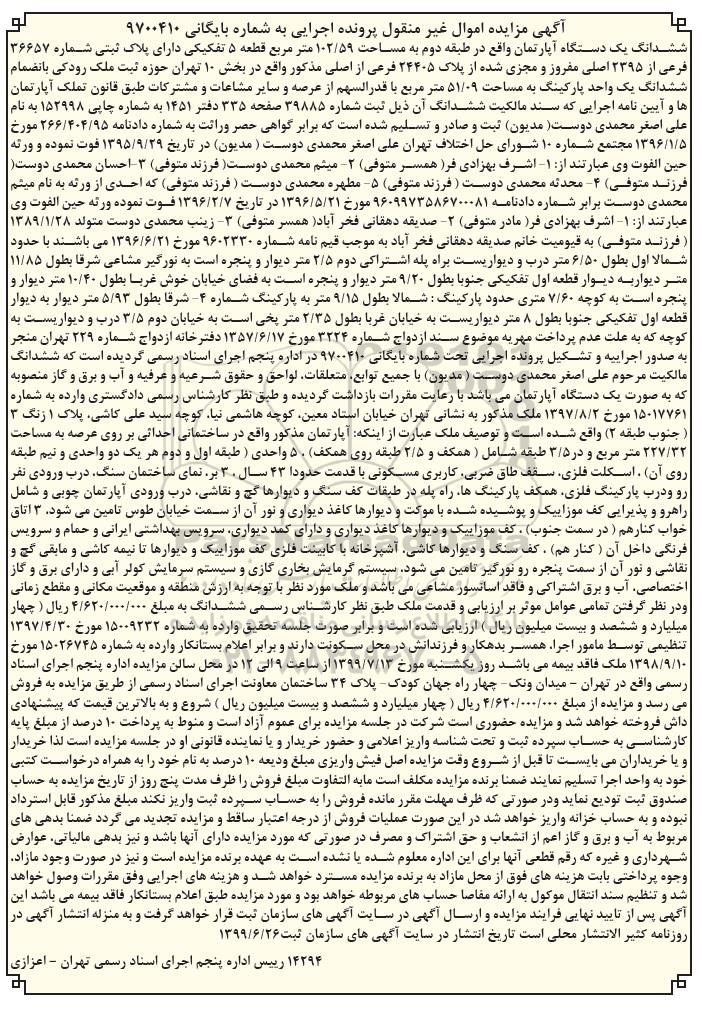 آگهی مزایده اموال غیر منقول پرونده اجرایی به شماره بایگانی ۹۷۰۰۴۱۰
ششدانگ یک دستگاه آپارتمان واقع در طبقه دوم به مساحت ۱۰۲/۵۹ متر مربع قطعه ۵ تفکیکی دارای پلاک ثبتی شماره ۳۶۶۵۷
فرعی از ۲۳۹۵ اصلی مفروز و مجزی شده از پلاک ۲۴۴۰۵ فرعی از اصلی مذکور واقع در بخش ۱۰ تهران حوزه ثبت ملک رودکی بانضمام
ششدانگ یک واحد پارکینگ به مساحت ۵۱/۰۹ متر مربع با قدرالسهم از عرصه و سایر مشاعات و مشترکات طبق قانون تملک آپارتمان
ها و آیین نامه اجرایی که سند مالکیت ششدانگ آن ذیل ثبت شماره ۳۹۸۸۵ صفحه ۳۳۵ دفتر ۱۴۵۱ به شماره چاپی ۱۵۲۹۹۸ به نام
علی اصغر محمدی دوست( مدیون) ثبت و صادر و تسلیم شده است که برابر گواهی حصر وراثت به شماره دادنامه ۲۶۶/۴۰۴/۹۵ مورخ
۱۳۹۶/۱/۵ مجتمع شماره ۱۰ شورای حل اختلاف تهران علی اصغر محمدی دوست ( مدیون) در تاریخ ۱۳۹۵/۹/۲۹ فوت نموده و ورثه
حین الفوت وی عبارتند از: ۱- اشرف بهزادی فر( همسر متوفی) ۲- میثم محمدی دوست( فرزند متوفی) ۳-احسان محمدی دوست(
فرزند متوفی) ۴- محدثه محمدی دوست ( فرزند متوفی) ۵- مطهره محمدی دوست ( فرزند متوفی) که احدی از ورثه به نام میثم
محمدی دوست برابر شماره دادنامه ۹۶۰۹۹۷۳۵۸۶۷۰۰۰۸۱ مورخ ۱۳۹۶/۵/۲۱ در تاریخ ۱۳۹۶/۲/۷ فوت نموده ورثه حین الفوت وی
عبارتند از: ۱- اشرف بهزادی فر( مادر متوفی) ۲- صدیقه دهقانی فخر آباد( همسر متوفی) ۳- زینب محمدی دوست متولد ۱۳۸۹/۱/۲۸
( فرزند متوفی) به قیومیت خانم صدیقه دهقانی فخر آباد به موجب قیم نامه شماره ۹۶۰۲۳۳۰ مورخ ۱۳۹۶/۶/۲۱ می باشند با حدود
شمالا اول بطول ۶/۵۰ متر درب و دیواریست براه پله اشتراکی دوم ۲/۵ متر دیوار و پنجره است به نورگیر مشاعی شرقا بطول ۱۱/۸۵
متر دیواربه دیوار قطعه اول تفکیکی جنوبا بطول ۹/۲۰ متر دیوار و پنجره است به فضای خیابان خوش غربا بطول ۱۰/۴۰ متر دیوار و
پنجره است به کوچه ۷/۶۰ متری حدود پارکینگ : شمالا بطول ۹/۱۵ متر به پارکینگ شماره ۴- شرقا بطول ۵/۹۳ متر دیوار به دیوار
قطعه اول تفکیکی جنوبا بطول ۸ متر دیواریست به خیابان غربا بطول ۲/۳۵ متر پخی است به خیابان دوم ۳/۵ درب و دیواریست به
کوچه که به علت عدم پرداخت مهریه موضوع سند ازدواج شماره ۳۲۲۴ مورخ ۱۳۵۷/۶/۱۷ دفترخانه ازدواج شماره ۲۲۹ تهران منجر
به صدور اجراییه و تشکیل پرونده اجرایی تحت شماره بایگانی ۹۷۰۰۴۱۰ در اداره پنجم اجرای اسناد رسمی گردیده است که ششدانگ
مالکیت مرحوم علی اصغر محمدی دوست ( مدیون) با جمیع توابع، متعلقات، لواحق و حقوق شرعیه و عرفیه و آب و برق و گاز منصوبه
که به صورت یک دستگاه آپارتمان می باشد با رعایت مقررات بازداشت گردیده و طبق نظر کارشناس رسمی دادگستری وارده به شماره
۱۵۰۱۷۷۶۱ مورخ ۱۳۹۷/۸/۲ ملک مذکور به نشانی تهران خیابان استاد معین، کوچه هاشمی نیا، کوچه سید علی کاشی، پلاک ۱ زنگ ۳
( جنوب طبقه ۲) واقع شده است و توصیف ملک عبارت از اینکه: آپارتمان مذکور واقع در ساختمانی احداثی بر روی عرصه به مساحت
۲۲۷/۳۲ متر مربع و در۳/۵ طبقه شامل ( همکف و ۲/۵ طبقه روی همکف) ، ۵ واحدی ( طبقه اول و دوم هر یک دو واحدی و نیم طبقه
روی آن) ، اسکلت فلزی، سقف طاق ضربی، کاربری مسکونی با قدمت حدودا ۴۳ سال ، ۳ بر، نمای ساختمان سنگ، درب ورودی نفر
رو ودرب پارکینگ فلزی، همکف پارکینگ ها، راه پله در طبقات کف سنگ و دیوارها گچ و نقاشی، درب ورودی آپارتمان چوبی و شامل
راهرو و پذیرایی کف موزاییک و پوشیده شده با موکت و دیوارها کاغذ دیواری و نور آن از سمت خیابان طوس تامین می شود، ۳ اتاق
خواب کنارهم ( در سمت جنوب) ، کف موزاییک و دیوارها کاغذ دیواری و دارای کمد دیواری، سرویس بهداشتی ایرانی و حمام و سرویس
فرنگی داخل آن ( کنار هم) ، کف سنگ و دیوارها کاشی، آشپزخانه با کابینت فلزی کف موزاییک و دیوارها تا نیمه کاشی و مابقی گچ و
نقاشی و نور آن از سمت پنجره رو نورگیر تامین می شود، سیستم گرمایش بخاری گازی و سیستم سرمایش کولر آبی و دارای برق و گاز
اختصاصی، آب و برق اشتراکی و فاقد آسانسور مشاعی می باشد و ملک مورد نظر با توجه به ارزش منطقه و موقعیت مکانی و مقطع زمانی
ودر نظر گرفتن تمامی عوامل موثر بر ارزیابی و قدمت ملک طبق نظر کارشناس رسمی ششدانگ به مبلغ ۴/۶۲۰/۰۰۰/۰۰۰ ریال ( چهار
میلیارد و ششصد و بیست میلیون ریال ) ارزیابی شده است و برابر صورت جلسه تحقیق وارده به شماره ۱۵۰۰۹۲۳۲ مورخ ۱۳۹۷/۴/۳۰
تنظیمی توسط مامور اجرا، همسر بدهکار و فرزندانش در محل سکونت دارند و برابر اعلام بستانکار وارده به شماره ۱۵۰۲۶۷۴۵ مورخ
۱۳۹۸/۹/۱۰ ملک فاقد بیمه می باشد روز یکشنبه مورخ ۱۳۹۹/۷/۱۳ از ساعت ۹ الی ۱۲ در محل سالن مزایده اداره پنجم اجرای اسناد
رسمی واقع در تهران - میدان ونک- چهار راه جهان کودک- پلاک ۳۴ ساختمان معاونت اجرای اسناد رسمی از طریق مزایده به فروش
می رسد و مزایده از مبلغ ۴/۶۲۰/۰۰۰/۰۰۰ ریال ( چهار میلیارد و ششصد و بیست میلیون ریال ) شروع و به بالاترین قیمت که پیشنهادی
داش فروخته خواهد شد و مزایده حضوری است شرکت در جلسه مزایده برای عموم آزاد است و منوط به پرداخت ۱۰ درصد از مبلغ پایه
کارشناسی به حساب سپرده ثبت و تحت شناسه واریز اعلامی و حضور خریدار و یا نماینده قانونی او در جلسه مزایده است لذا خریدار
و یا خریداران می بایست تا قبل از شروع وقت مزایده اصل فیش واریزی مبلغ ودیعه ۱۰ درصد به نام خود را به همراه درخواست کتبی
خود به واحد اجرا تسلیم نمایند ضمنا برنده مزایده مکلف است مابه التفاوت مبلغ فروش را ظرف مدت پنج روز از تاریخ مزایده به حساب
صندوق ثبت تودیع نماید ودر صورتی که ظرف مهلت مقرر مانده فروش را به حساب سپرده ثبت واریز نکند مبلغ مذکور قابل استرداد
نبوده و به حساب خزانه واریز خواهد شد در این صورت عملیات فروش از درجه اعتبار ساقط و مزایده تجدید می گردد ضمنا بدهی های
مربوط به آب و برق و گاز اعم از انشعاب و حق اشتراک و مصرف در صورتی که مورد مزایده دارای آنها باشد و نیز بدهی مالیاتی، عوارض
شهرداری و غیره که رقم قطعی آنها برای این اداره معلوم شده یا نشده است به عهده برنده مزایده است و نیز در صورت وجود مازاد،
وجوه پرداختی بابت هزینه های فوق از محل مازاد به برنده مزایده مسترد خواهد شد و هزینه های اجرایی وفق مقررات وصول خواهد
شد و تنظیم سند انتقال موکول به ارائه مفاصا حساب های مربوطه خواهد بود و مورد مزایده طبق اعلام بستانکار فاقد بیمه می باشد این
آگهی پس از تایید نهایی فرایند مزایده و ارسال آگهی در سایت آگهی های سازمان ثبت قرار خواهد گرفت و به منزله انتشار آگهی در
روزنامه کثیر الانتشار محلی است تاریخ انتشار در سایت آگهی های سازمان ثبت۱۳۹۹/۶/۲۶
۱۴۲۹۴ رییس اداره پنجم اجرای اسناد رسمی تهران - اعزازی